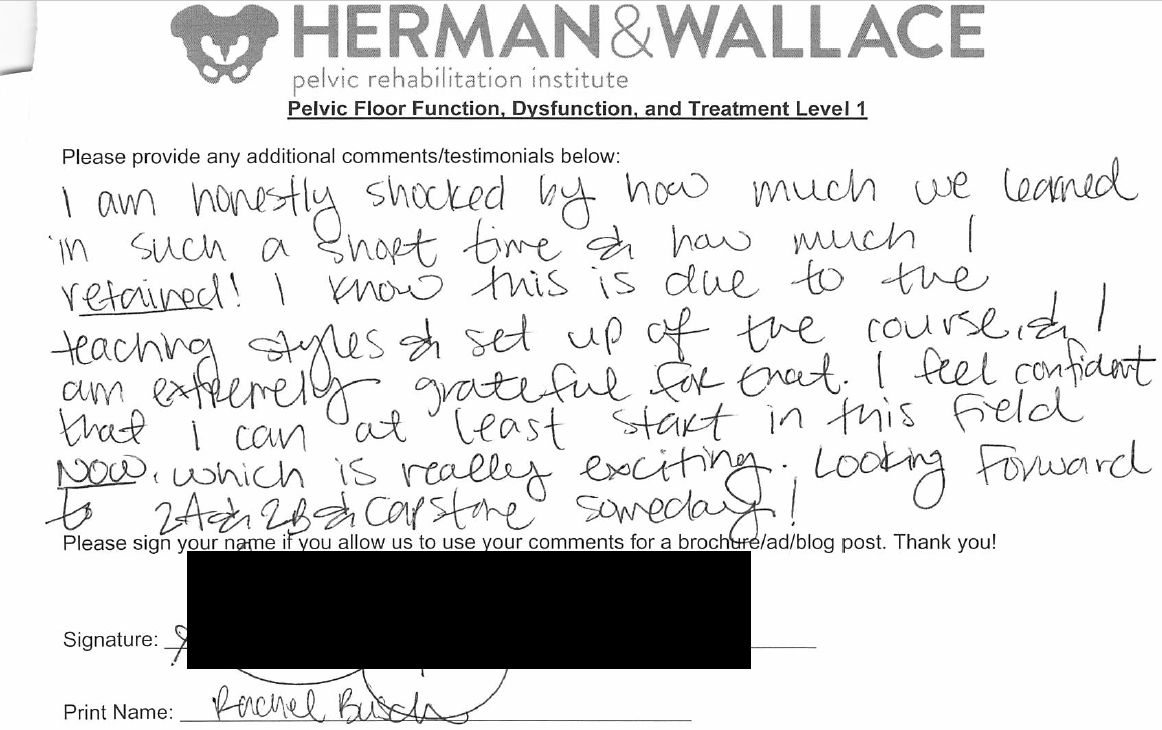 HERMAN&WALLACE
pelvic rehabilitation institute
Pelvic Floor Function, Dysfunction, and Treatment Level 1
Please provide any additional comments/testimonials below:
I am honestly shocked by how much we learned
in such a short time & how much I
retained! I know this is due to the
teaching styles & set up of the course, & I
am extremely grateful for that. I feel confident
that I can at least start in this field
NOW, which is really exciting. Looking Forward
to 2A & 2B & Capstone someday!
Please sign your name if you allow us to use your comments for a brochure/ad/blog post. Thank you!
Signature:
Print Name: Rachel Busch